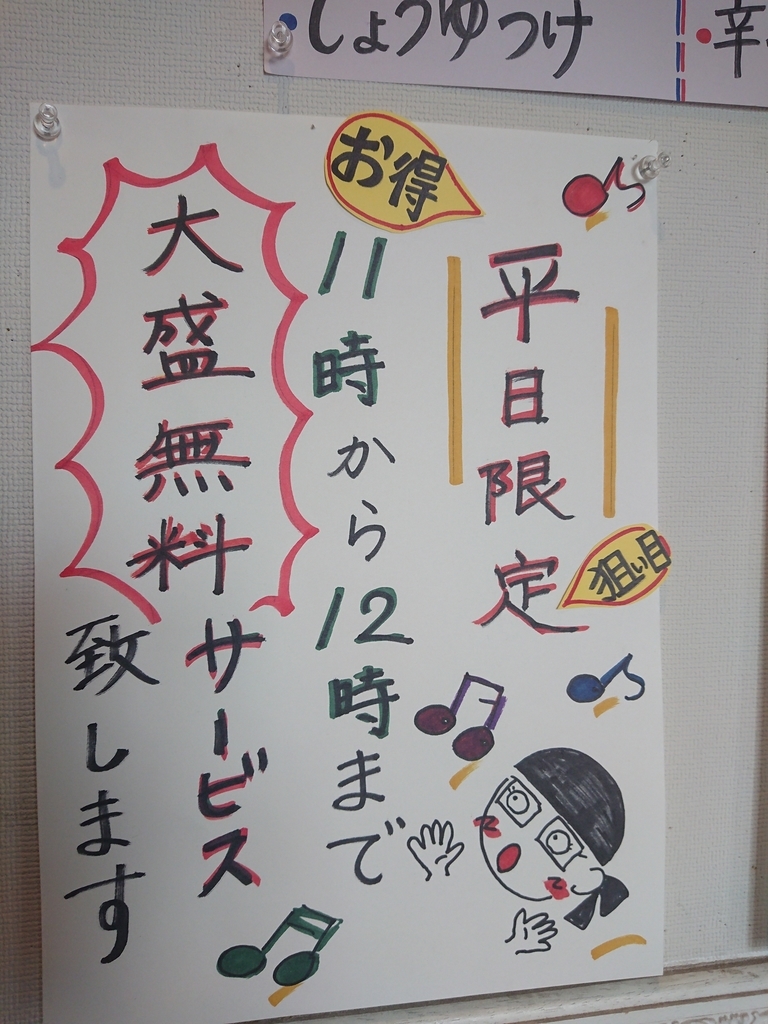 ・しょうゆつけ
・辛
お得
平日限定
狙い目
11時から12時まで
大盛無料サービス
致します